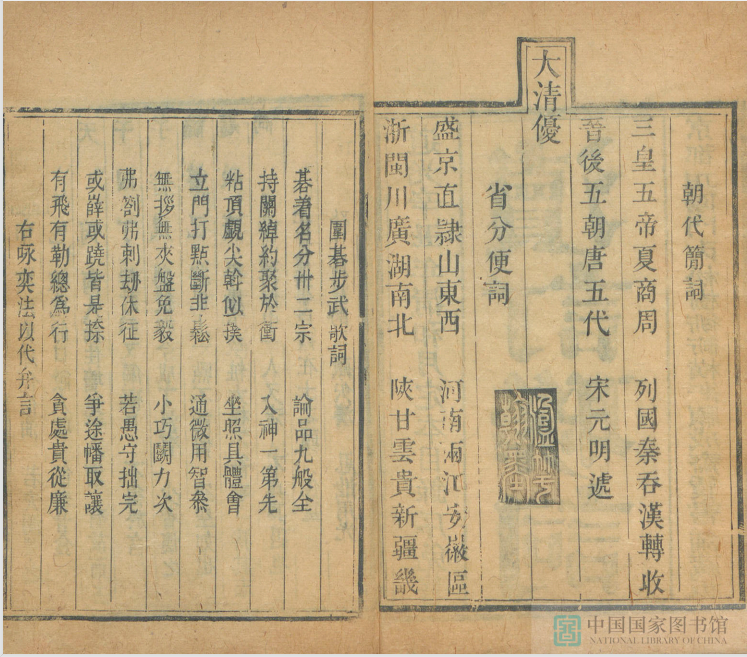 朝代簡詞
三皇五帝夏商周 列國秦吞漢轉收
晉後五朝唐五代 宋元明號
大清優
省分便詞
盛京直隸山東西 河南兩江安徽區
浙閩川廣湖南北 陝甘雲貴新疆畿
圍碁步武歌詞
碁着名分卅二宗 論品九般全
持關綽約聚於衝 入神一第先
粘頂覷尖幹似撲 坐照具體會
立門打點斷非鬆 通微用智叅
無拶無夾盤免毅 小巧鬬力次
弗劄弗刺刼休征 若愚守拙完
或薛或蹺皆是捺 爭途幡取讓
有飛有勒總爲行 貪處貴從廉
右咏奕法以代弁言
中国国家图书馆
NATIONAL LIBRARY OF CHINA